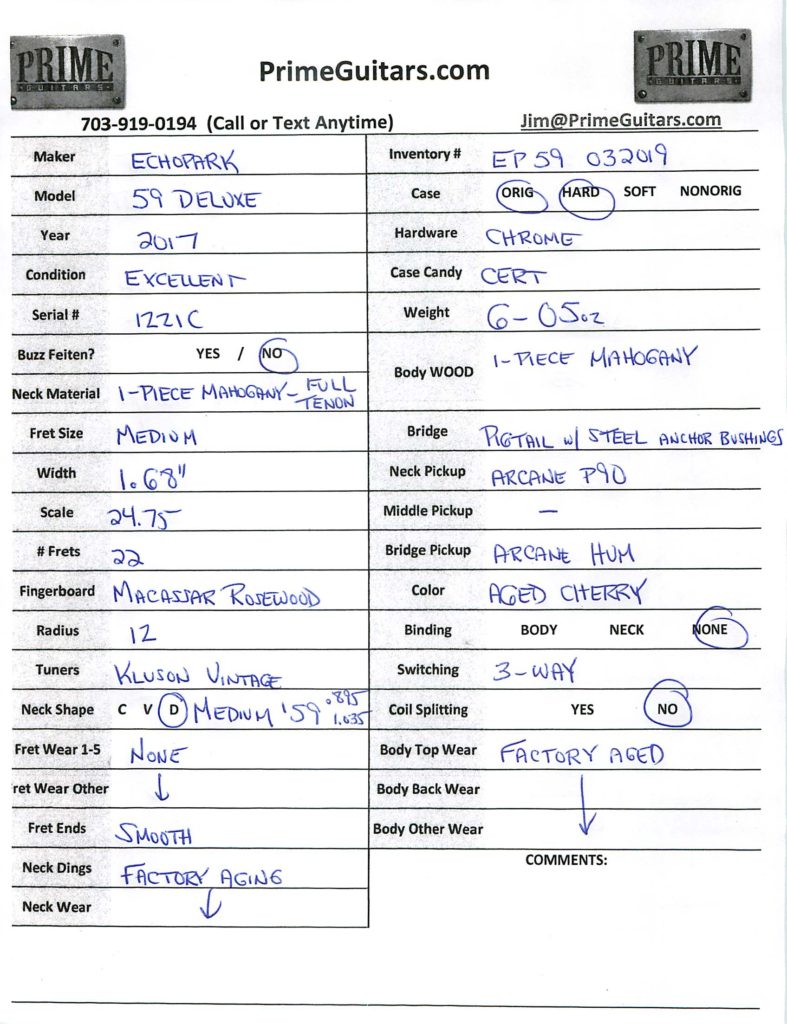 PRIME
GUITARS
PrimeGuitars.com
PRIME
GUITARS
703-919-0194 (Call or Text Anytime)
Jim@PrimeGuitars.com
Maker ECHOPARK
Model 59 DELUXE
Year 2017
Condition EXCELLENT
Serial # 1221C
Buzz Feiten? YES / NO
Neck Material 1-PIECE MAHOGANY- FULL TENON
Fret Size MEDIUM
Width 1.68"
Scale 24.75
# Frets 22
Fingerboard MACASSAR ROSEWOOD
Radius 12
Tuners KLUSON VINTAGE
Neck Shape C V D MEDIUM '59 .895 1.035
Fret Wear 1-5 NONE
ret Wear Other ↓
Fret Ends SMOOTH
Neck Dings FACTORY AGING
Neck Wear ↓
Inventory # EP 59 032019
Case ORIG HARD SOFT NONORIG
Hardware CHROME
Case Candy CERT
Weight 6-05oz
Body WOOD 1-PIECE MAHOGANY
Bridge PIGTAIL w/ STEEL ANCHOR BUSHINGS
Neck Pickup ARCANE P90
Middle Pickup —
Bridge Pickup ARCANE HUM
Color AGED CHERRY
Binding BODY NECK NONE
Switching 3-WAY
Coil Splitting YES NO
Body Top Wear FACTORY AGED
Body Back Wear
Body Other Wear ↓
COMMENTS: